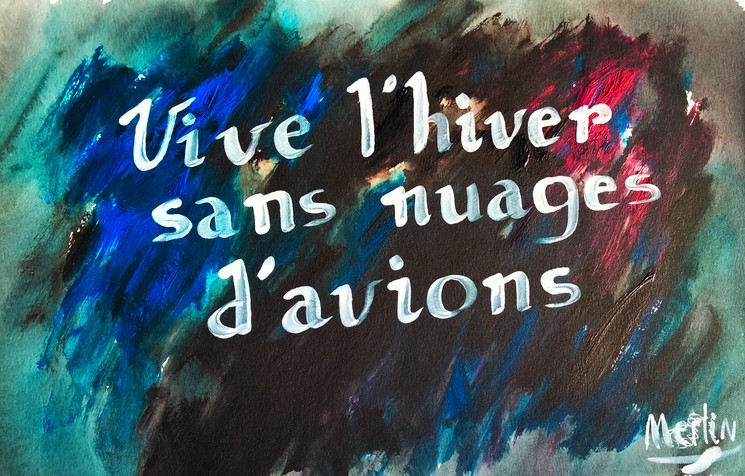 Vive l'hiver
sans nuages
d'avions
Merlin